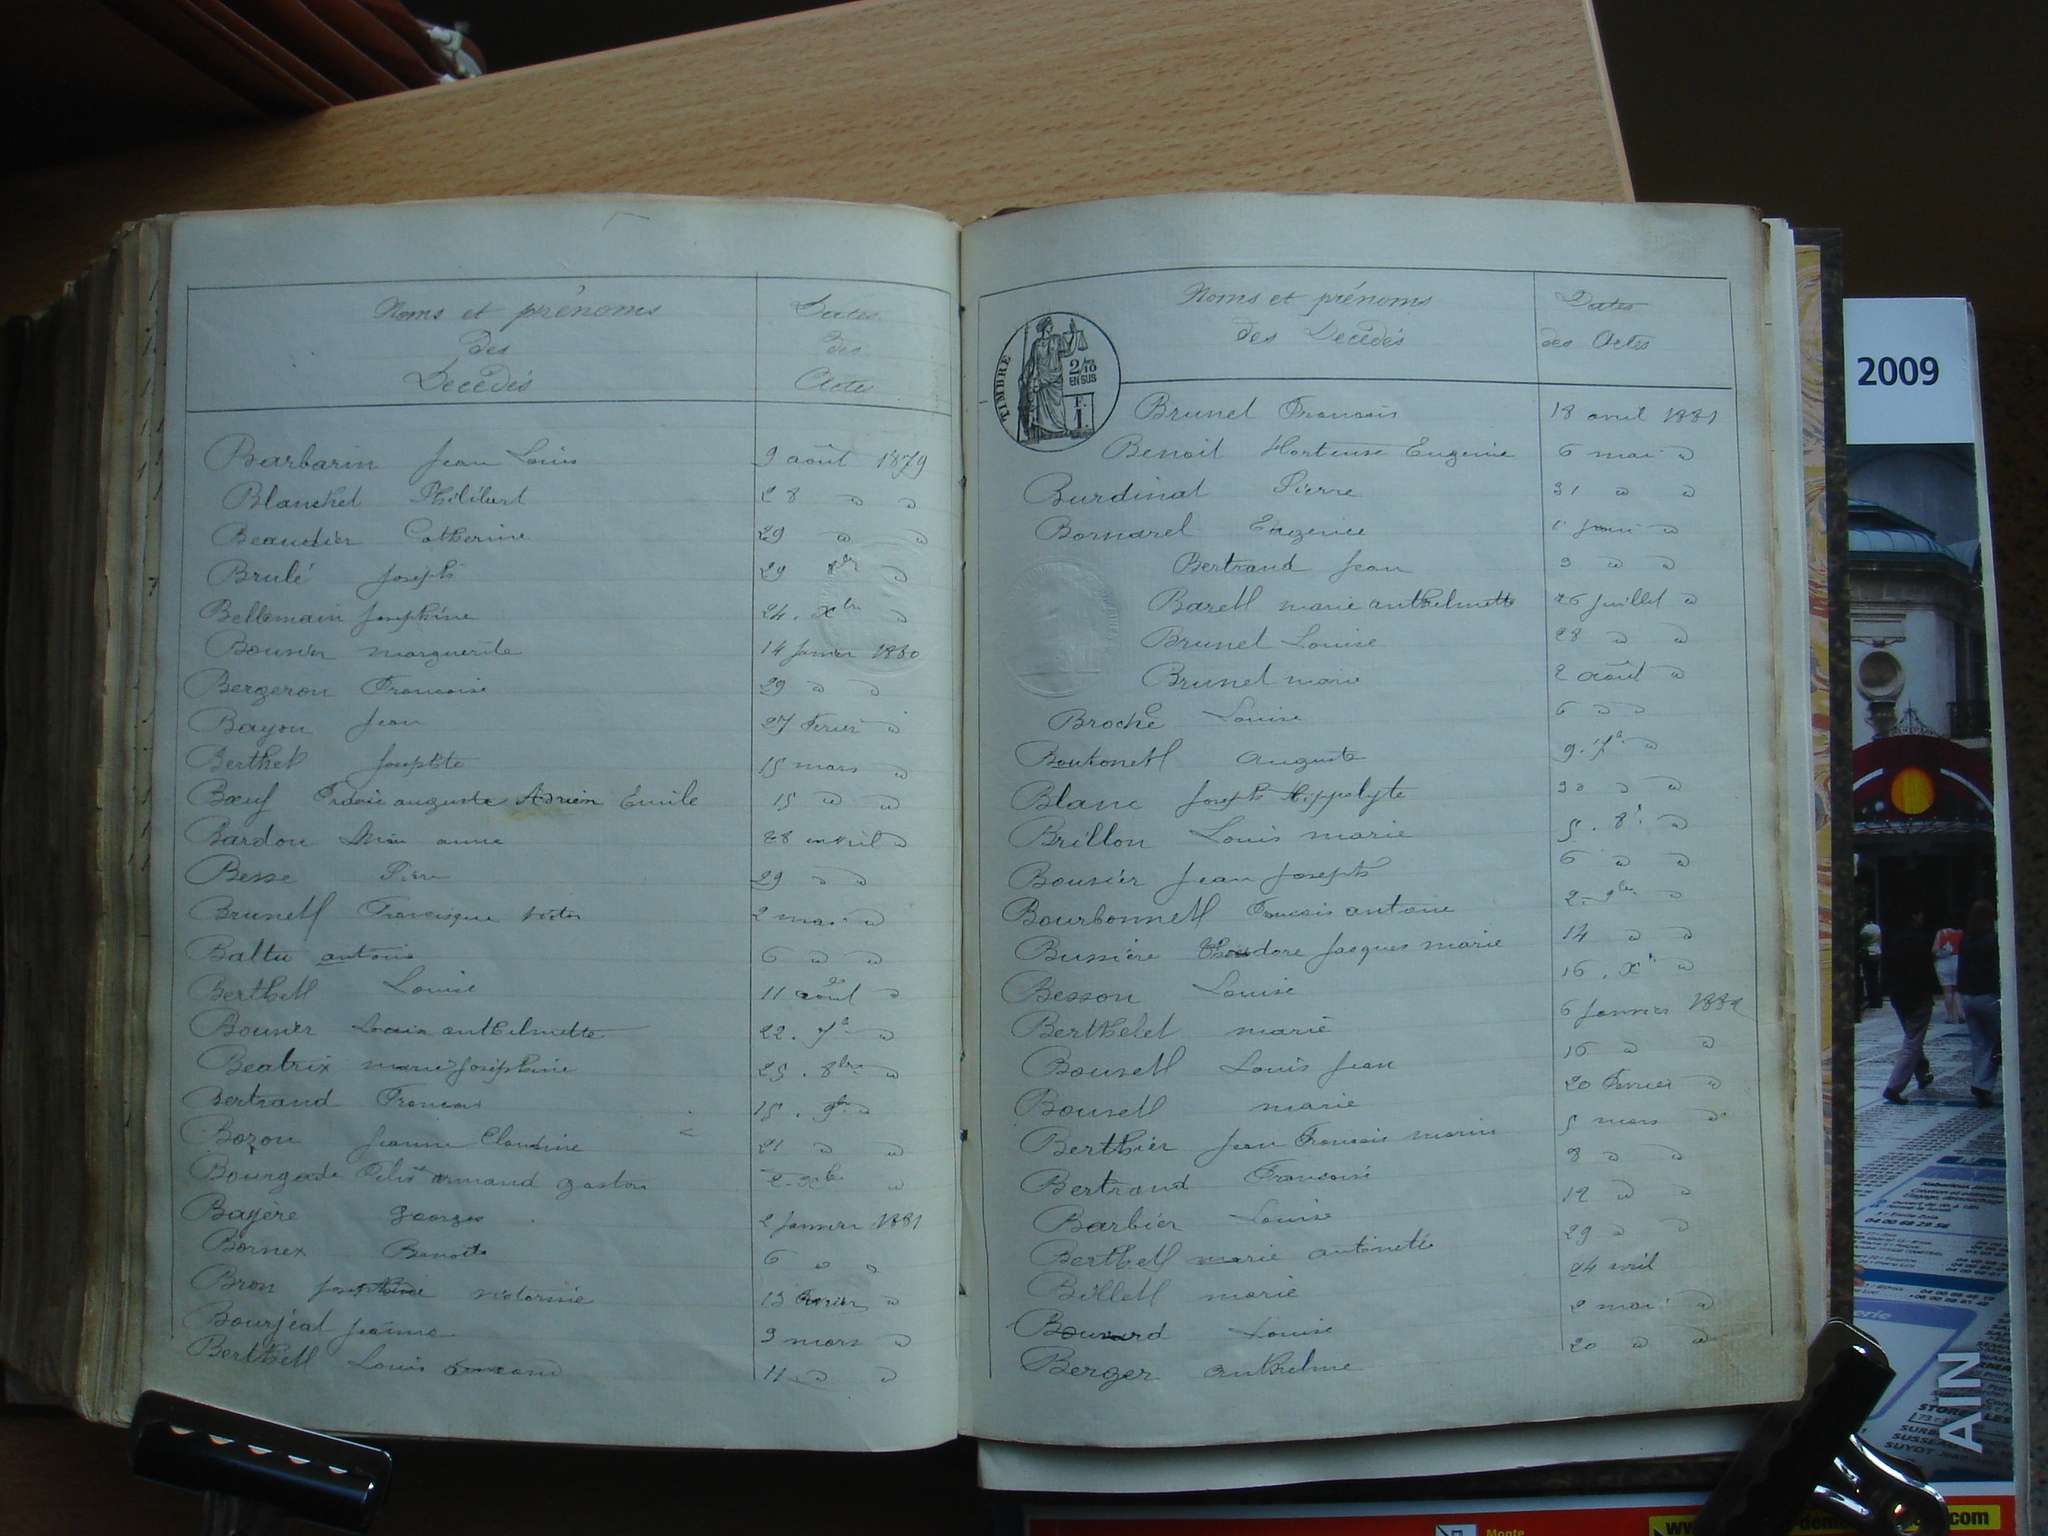 Noms et prénoms
des
Décédés
Dates
des
Actes
Barbarin Jean Louis 9 août 1879
Blanchet Philibert 28 " "
Beaudier Catherine 29 " "
Brulé Joseph 29 8bre "
Bellemain Joséphine 24. Xbre "
Bouvier marguerite 14 Janvier 1880
Bergeron Francoise 29 " "
Bayon Jean 27 Fevrier "
Berthet Josephte 15 mars "
Bœuf auguste Adrien Emile 15 " "
Bardon anne 28 avril "
Besse Pierre 29 " "
Brunell Francisque victor 2 mai "
Baltu antoine 6 " "
Berthell Louise 11 août "
Bouvier Louise anthelmette 22. 7b "
Beatrix marie Joséphine 25. 8bre "
Bertrand Francois 15. 9bre "
Bozon Jeanne Claudine 21 " "
Bourgade armand gaston 2. Xbre "
Bayère georges 2 Janvier 1881
Bornex Benoite 6 " "
Bron Josephine victorine 13 Fevrier "
Bourjeal Jeanne 9 mars "
Berthell Louis 11 " "
Noms et prénoms
des Décédés
Dates
des Actes
TIMBRE
2/10
EN SUS
F.
1.
Brunel Francois 18 avril 1881
Benoit Hortense Eugenie 6 mai "
Burdinat Pierre 31 " "
Bomarel Eugenie Juin "
Bertrand Jean 9 " "
Barell marie anthelmette 26 Juillet "
Brunel Louise 28 " "
Brunel marie 2 août "
Broche Louise 6 " "
Boutonell auguste 9. 7b. "
Blanc Joseph Hippolyte 30 " "
Brillon Louis marie 5. 8b "
Bouvier Jean Joseph 6 " "
Bourbonnell Francois antoine 2. 9bre "
Bussière Théodore Jacques marie 14 " "
Besson Louise 16. Xb "
Berthelet marie 6 Janvier 1882
Bousell Louis Jean 16 " "
Bousell marie 20 Fevrier "
Berthier Jean Francois marie 5 mars "
Bertrand Francoise 8 " "
Barbier Louise 12 " "
Berthell marie antoinette 29 " "
Billell marie 24 avril
Louise 2 mai "
Berger anthelme 20 " "
2009
AIN